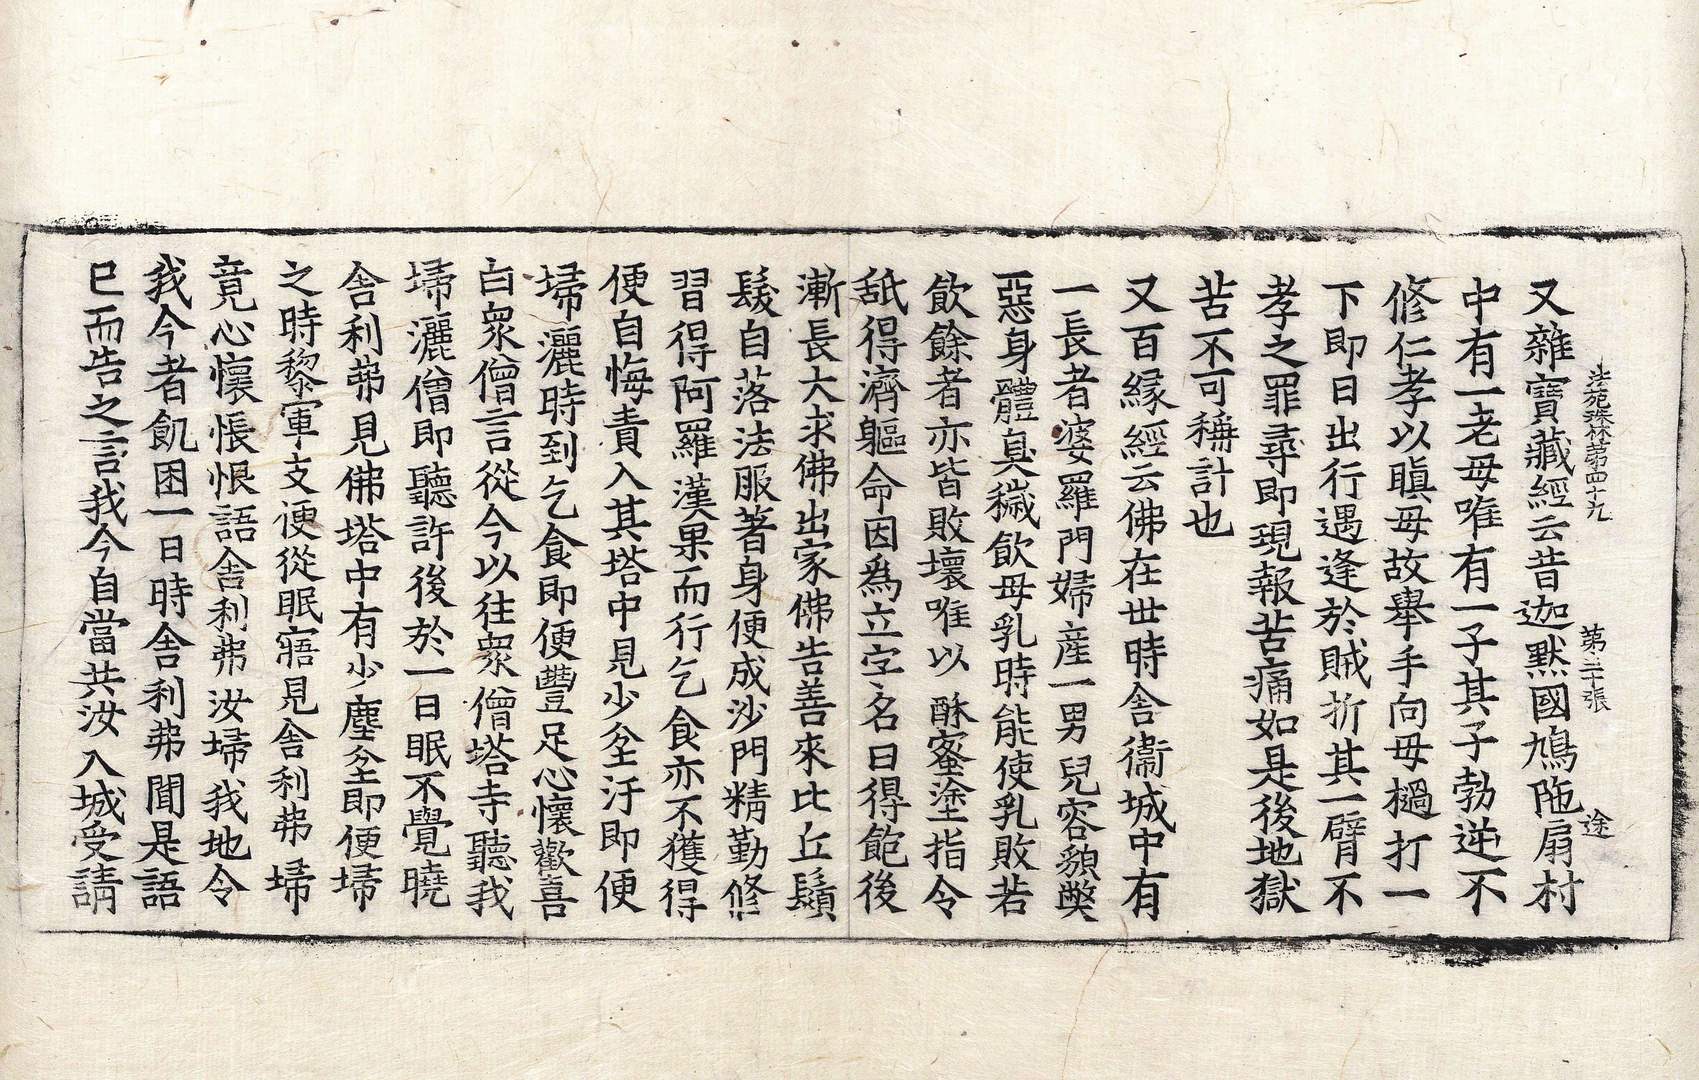 法苑珠林第四十九 第二十張 途
又雜寶藏經云昔迦默國鳩陁扇村
中有一老母唯有一子其子勃逆不
修仁孝以瞋母故舉手向母撾打一
下即日出行遇逢於賊折其一臂不
孝之罪尋即現報苦痛如是後地獄
苦不可稱計也
又百緣經云佛在世時舍衞城中有
一長者婆羅門婦産一男兒容貌弊
惡身體臭穢飲母乳時能使乳敗若
飲餘者亦皆敗壞唯以酥蜜塗指令
舐得濟軀命因爲立字名曰得飽後
漸長大求佛出家佛告善來比丘鬚
髮自落法服著身便成沙門精勤修
習得阿羅漢果而行乞食亦不獲得
便自悔責入其塔中見少坌汙即便
埽灑時到乞食即便豐足心懷歡喜
白衆僧言從今以往衆僧塔寺聽我
埽灑僧即聽許後於一日眠不覺曉
舍利弗見佛塔中有少塵坌即便埽
之時黎軍支便從眠寤見舍利弗埽
竟心懷悵恨語舍利弗汝埽我地令
我今者飢困一日時舍利弗聞是語
已而告之言我今自當共汝入城受請